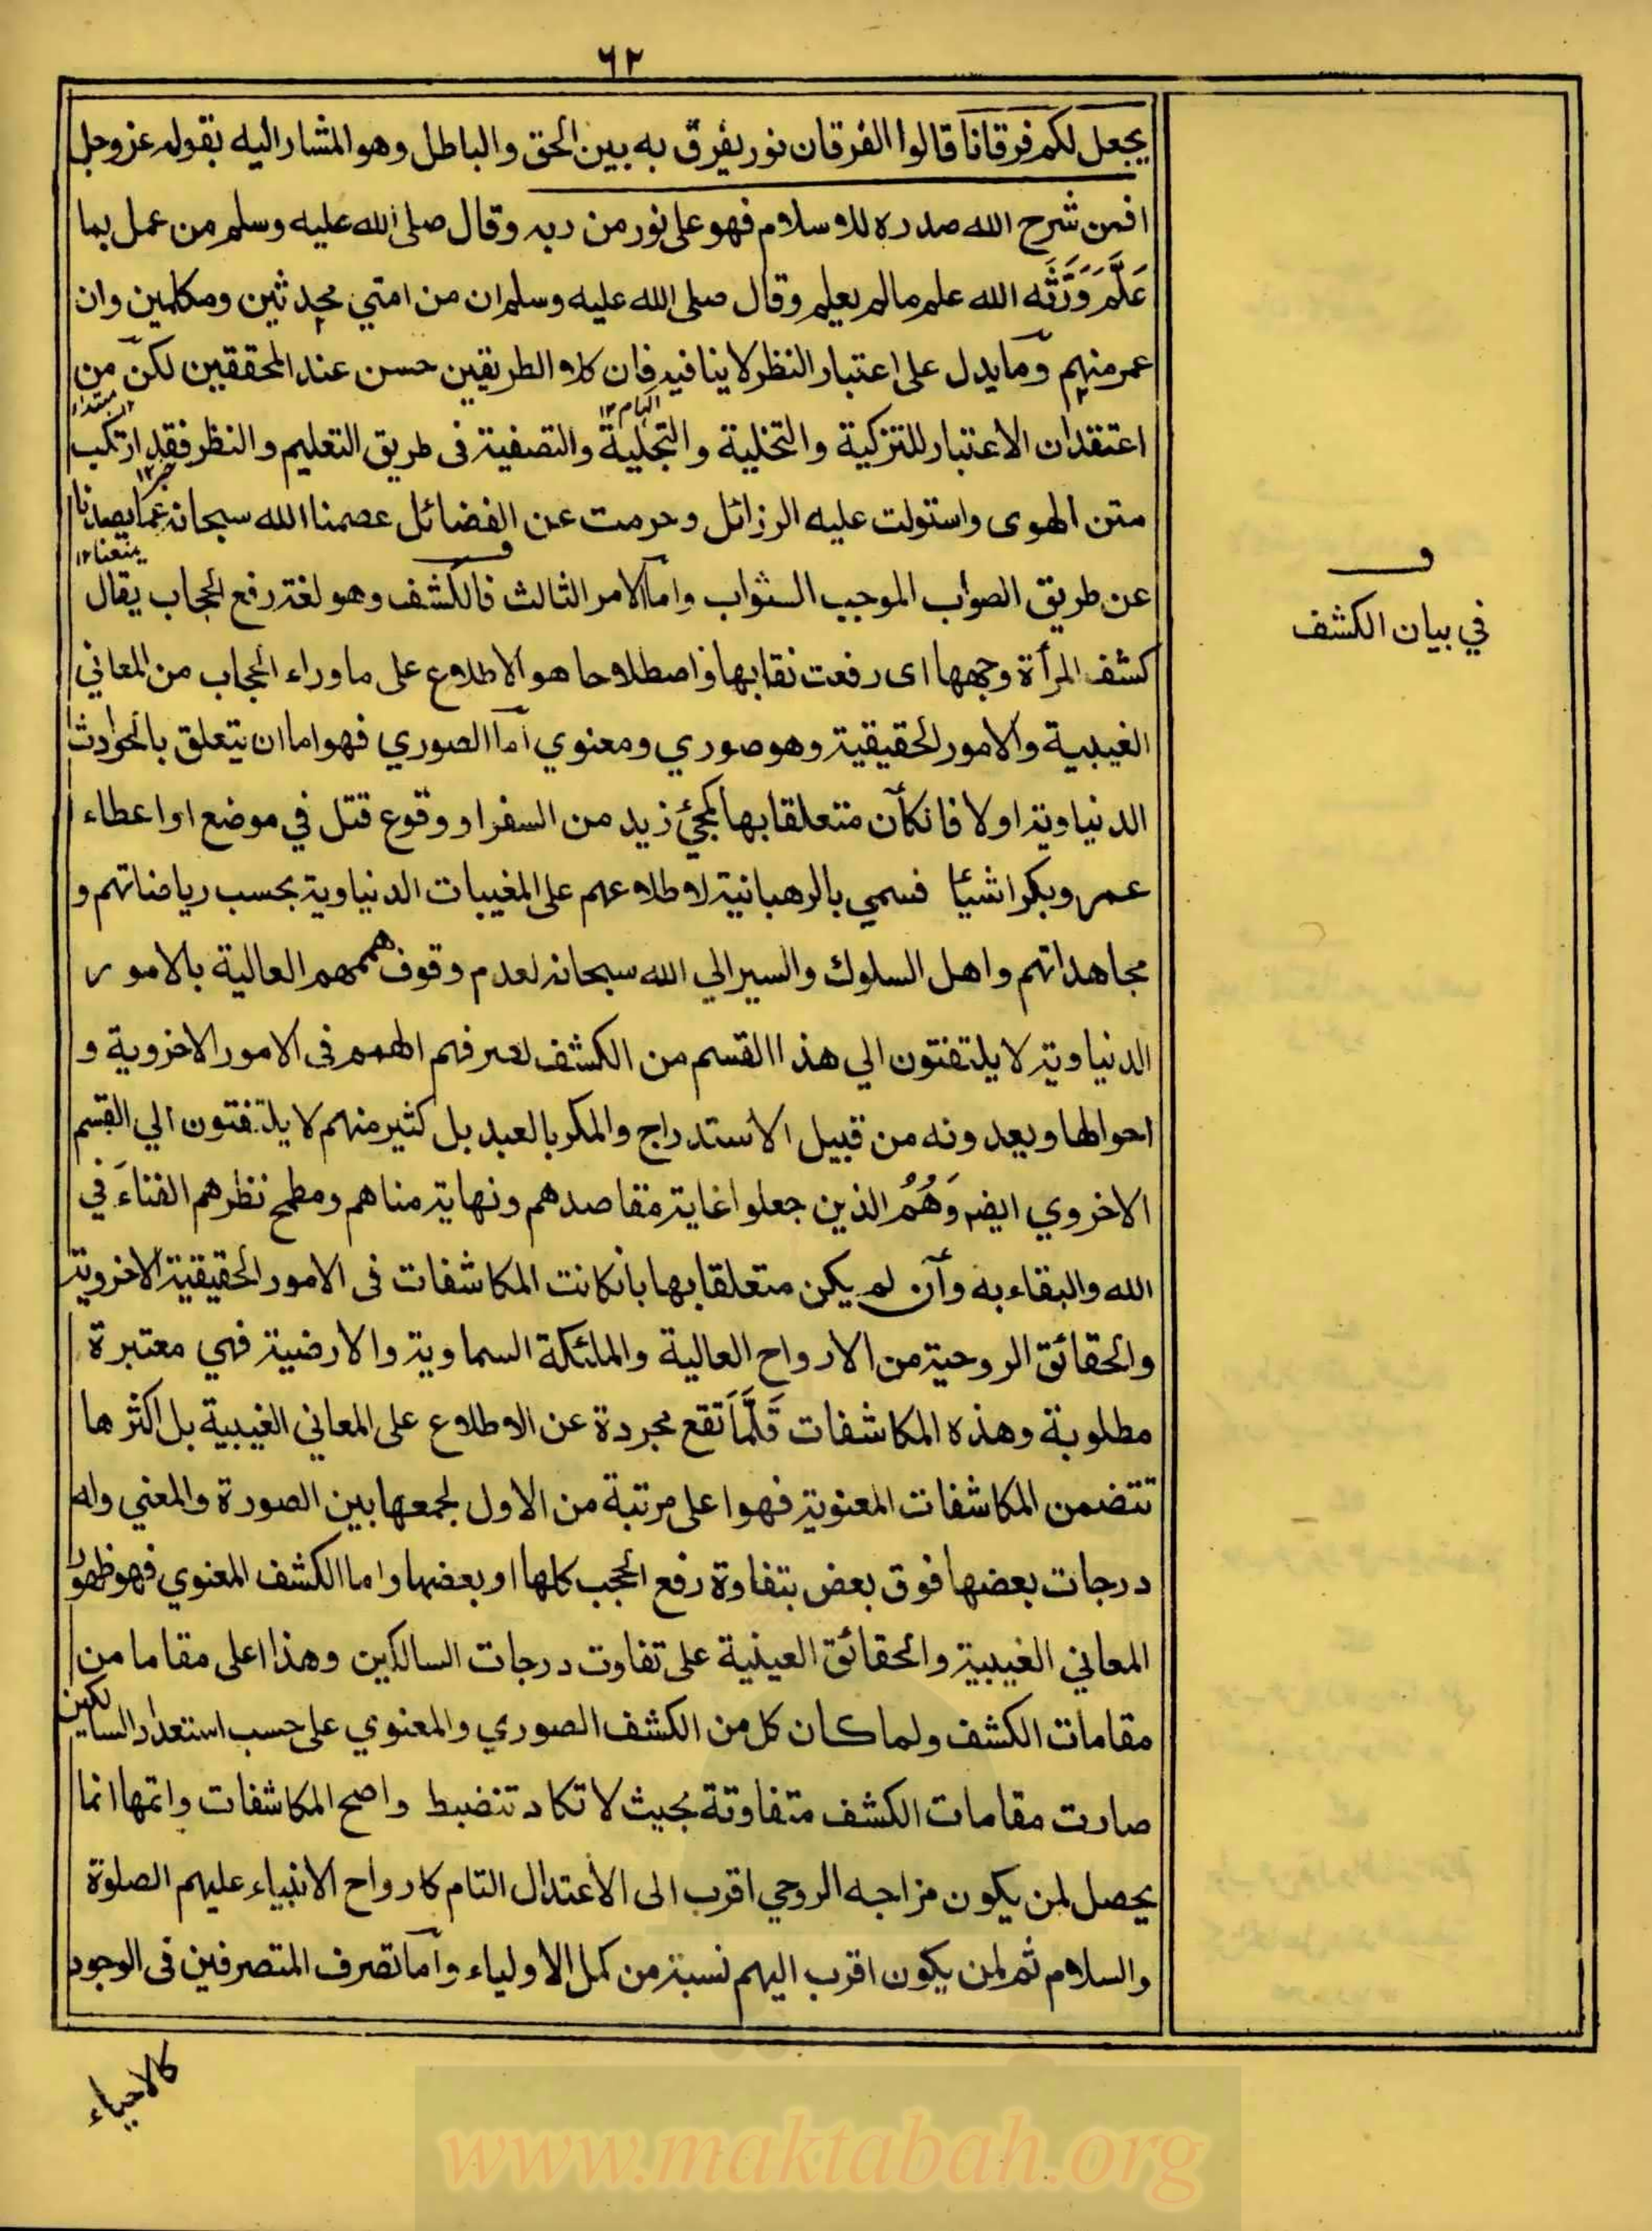 ٦٢
يجعل لكم فرقانا قالوا الفرقان نور يفرق به بين الحق والباطل وهو المشار اليه بقوله عز وجل
افمن شرح الله صدره للاسلام فهو على نور من ربه وقال صلى الله عليه وسلم من عمل بما
عَلَّمَ وَرَّثَه الله علم مالم يعلم وقال صلى الله عليه وسلم ان من امتي محدثين ومكلمين وان
عمر منهم وما يدل على اعتبار النظر لا ينافيه فان كلا الطريقين حسن عند المحققين لكن من
اعتقد ان الاعتبار للتزكية والتخلية والتجلية والتصفية فى طريق التعليم والنظر فقد ارتكب
متن الهوى واستولت عليه الرزائل وحرمت عن الفضائل عصمنا الله سبحانه عما يصدنا
يمنعنا ١٢
عن طريق الصواب الموجب الثواب واما الامر الثالث فالكشف وهو لغة رفع الحجاب يقال
في بيان الكشف
كشف المرأة وجهها اى رفعت نقابها واصطلاحا هو الاطلاع على ما وراء الحجاب من المعاني
الغيبية والامور الحقيقية وهو صوري ومعنوي اما الصوري فهو اما ان يتعلق بالحوادث
الدنياوية اولا فانكان متعلقا بها كمجئ زيد من السفر او وقوع قتل في موضع او اعطاء
عمر وبكرا شيئا فسمي بالرهبانية لاطلاعهم على المغيبات الدنياوية بحسب رياضاتهم و
مجاهداتهم واهل السلوك والسير الي الله سبحانه لعدم وقوف هممهم العالية بالامور
الدنياوية لا يلتفتون الي هذا القسم من الكشف لصرفهم الهمم فى الامور الاخروية و
احوالها ويعدونه من قبيل الاستدراج والمكر بالعبد بل كثير منهم لا يلتفتون الي القسم
الاخروي ايضه وَهُمُ الذين جعلوا غاية مقاصدهم ونهاية مناهم ومطمح نظرهم الفناءَ في
الله والبقاء به وان لم يكن متعلقا بها بانكانت المكاشفات فى الامور الحقيقية الاخروية
والحقائق الروحية من الارواح العالية والملئكة السماوية والارضية فهي معتبرة
مطلوبة وهذه المكاشفات قَلَّمَا تقع مجردة عن الاطلاع على المعاني الغيبية بل اكثرها
تتضمن المكاشفات المعنوية فهو اعلى مرتبة من الاول لجمعها بين الصورة والمعني وله
درجات بعضها فوق بعض بتفاوة رفع الحجب كلها او بعضها واما الكشف المعنوي فهو ظهور
المعاني الغيبية والحقائق العينية على تفاوت درجات السالكين وهذا اعلى مقاما من
مقامات الكشف ولما كان كل من الكشف الصوري والمعنوي على حسب استعداد السالكين
صارت مقامات الكشف متفاوتة بحيث لا تكاد تنضبط واصح المكاشفات واتمها انما
يحصل لمن يكون مزاجه الروحي اقرب الى الاعتدال التام كارواح الانبياء عليهم الصلوة
والسلام ثم لمن يكون اقرب اليهم نسبة من كمل الاولياء واما تصرف المتصرفين فى الوجود
كالاحياء
www.maktabah.org